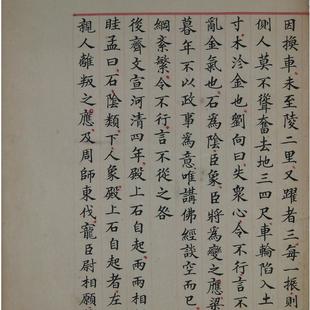 因換車未至陵二里又躍者三每一振則
側人莫不聳奮去地三四尺車輪陷入土
寸木沴金也劉向曰失衆心令不行言不
亂金氣也石爲陰臣象臣將爲變之應梁
暮年不以政事爲意唯講佛經談空而已
綱紊繁令不行言不從之咎
後齊文宣河清四年殿上石自起兩兩相
眭孟曰石陰類下人象殿上石自起者左
親人離叛之應及周師東伐寵臣尉相願